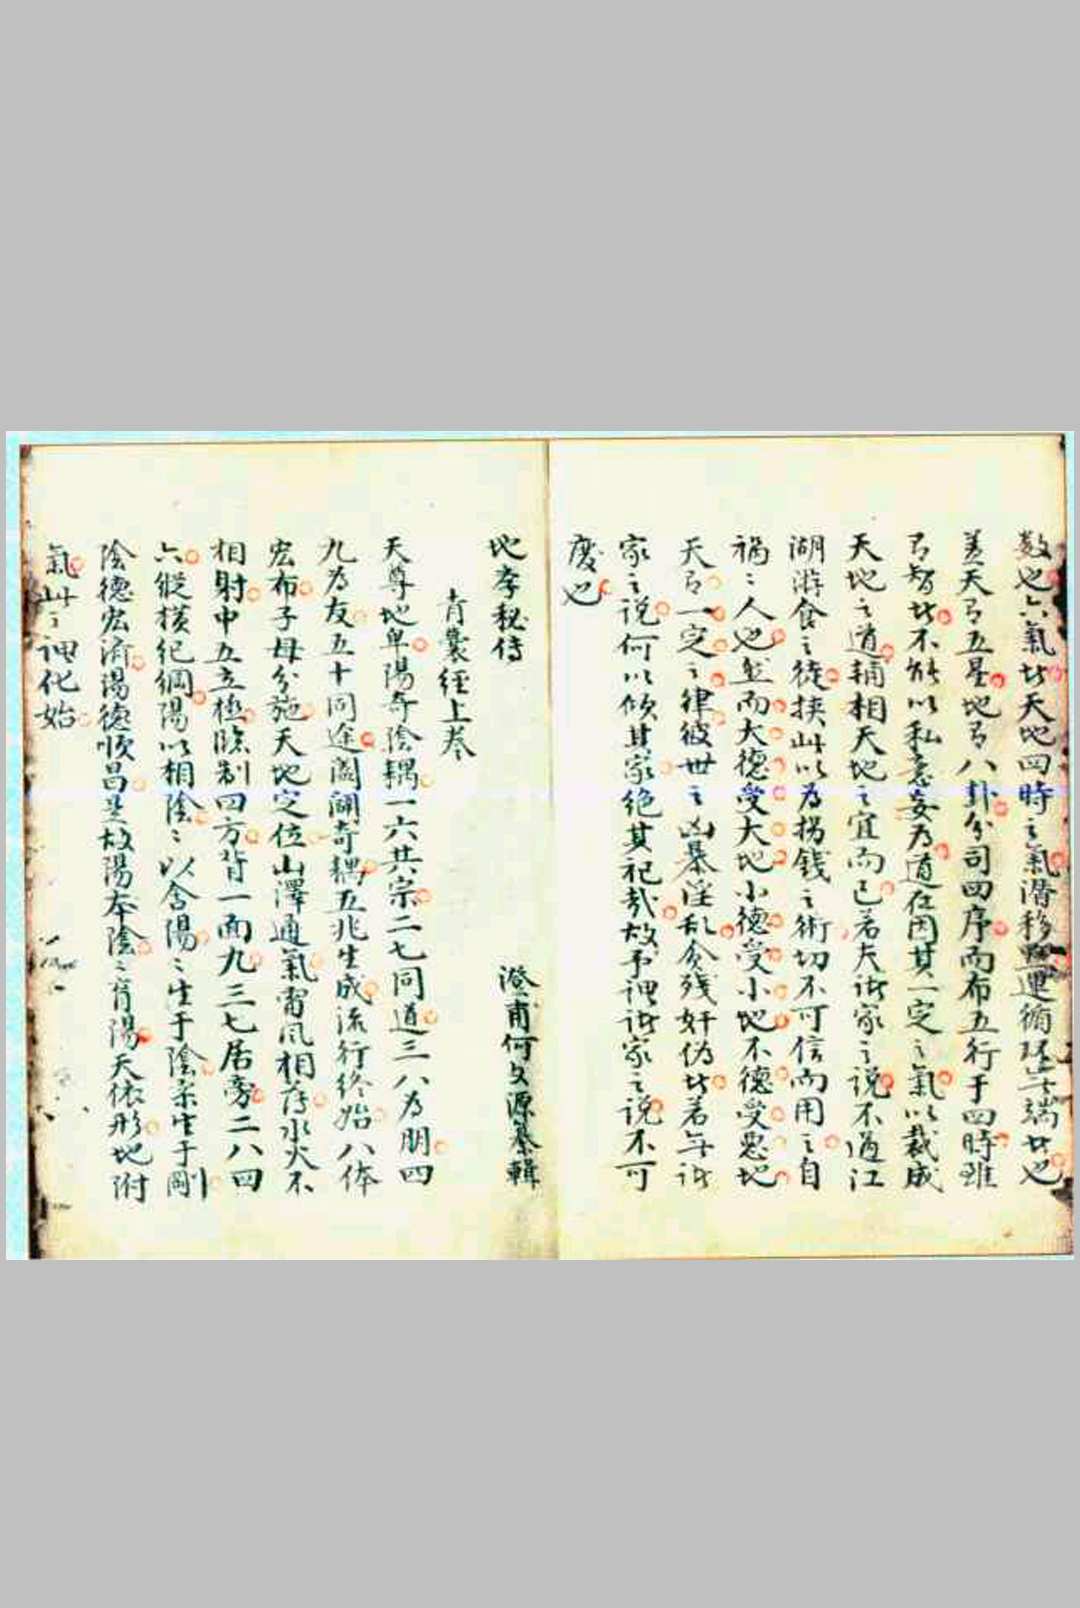 數也六氣者天地四時之氣潛移默運循環無端者也
蓋天有五星地有八卦分司四序而布五行于四時雖
有智者不能以私意妄為道任因其一定之氣以裁成
天地之道輔相天地之宜而已若夫諸家之說不過江
湖游食之徒挾此以為揚錢之術切不可信而用之自
禍禍人也然而大德受大地小德受小地不德受惡地
天有一定之律彼世之凶暴淫乱貪殘奸偽者無諸
家之說何以傾其家絶其祀哉故予謂諸家之說不可
廢也
地李秘传
澄甫何文源纂輯
青囊經上卷
天尊地卑陽奇陰耦一六共宗二七同道三八為朋四
九為友五十同途闔闢奇耦五兆生成流行終始八体
宏布子母分施天地定位山澤通氣雷風相薄水火不
相射中五立極臨制四方背一面九三七居旁二八四
六縱橫紀綱陽以相陰陰以含陽陽生于陰柔生于剛
陰德宏濟陽德順昌是故陽本陰陰育陽天依形地附
氣此之謂化始